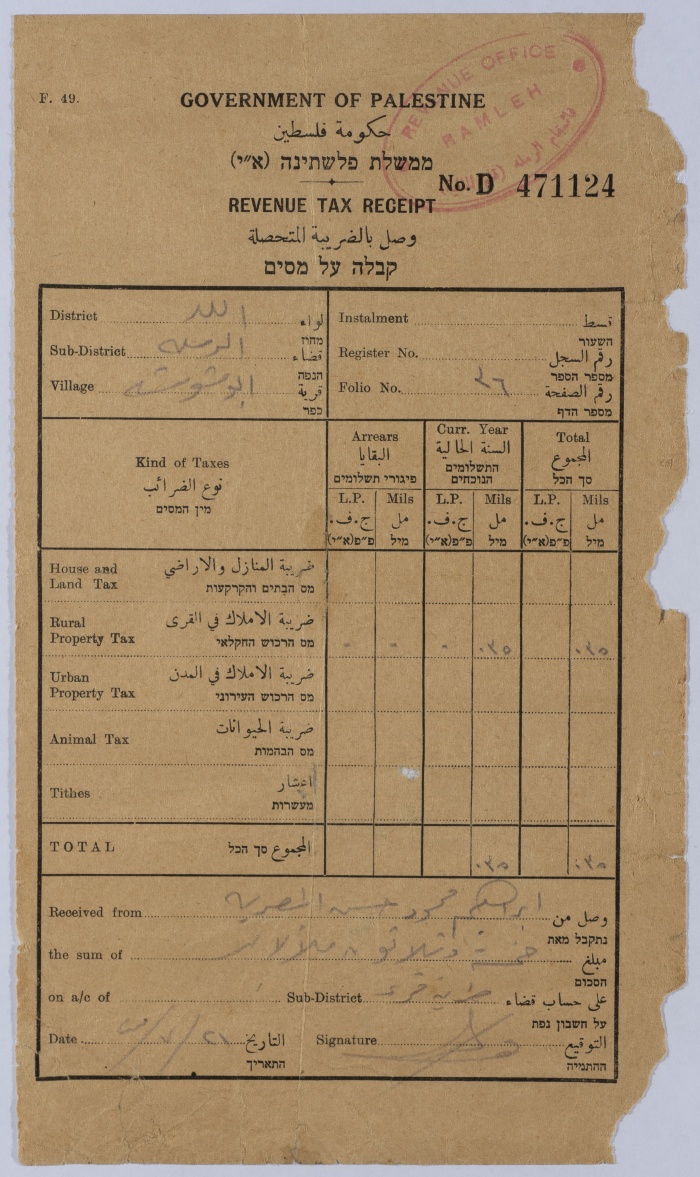 REVENUE OFFICE
RAMLEH
F. 49.
GOVERNMENT OF PALESTINE
حكومة فلسطين
ממשלת פלשתינה (א״י)
No. D 471124
REVENUE TAX RECEIPT
وصل بالضريبة المتحصلة
קבלה על מסים
District اللد لواء
מחוז
Sub-District الرملة قضاء
הנפה
Village ابو شوشة قرية
כפר
Instalment قسط
השעור
Register No. رقم السجل
מספר הספר
Folio No. ٣٦ رقم الصفحة
מספר הדף
Kind of Taxes
نوع الضرائب
מין המסים
Arrears
البقايا
פיגורי תשלומים
Curr. Year
السنة الحالية
התשלומים
הנוכחים
Total
المجموع
סך הכל
L.P. Mils L.P. Mils L.P. Mils
ج.ف. مل ج.ف. مل ج.ف. مل
פ״פ(א״י) מיל פ״פ(א״י) מיל פ״פ(א״י) מיל
House and
Land Tax
ضريبة المنازل والاراضي
מס הבתים והקרקעות
Rural
Property Tax
ضريبة الاملاك في القرى
מס הרכוש החקלאי
- - - ٠٣٥ ٠٣٥
Urban
Property Tax
ضريبة الاملاك في المدن
מס הרכוש העירוני
Animal Tax
ضريبة الحيوانات
מס הבהמות
Tithes
اعشار
מעשרות
TOTAL المجموع סך הכל ٠٣٥ ٠٣٥
Received from ابراهيم محمود حسن وصل من
נתקבל מאת
the sum of خمسة وثلاثون مبلغ
הסכום
on a/c of Sub-District على حساب قضاء
על חשבון נפת
Date التاريخ
התאריך
Signature التوقيع
ההתמיה